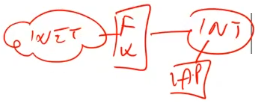 INET
FW
INT
IAP